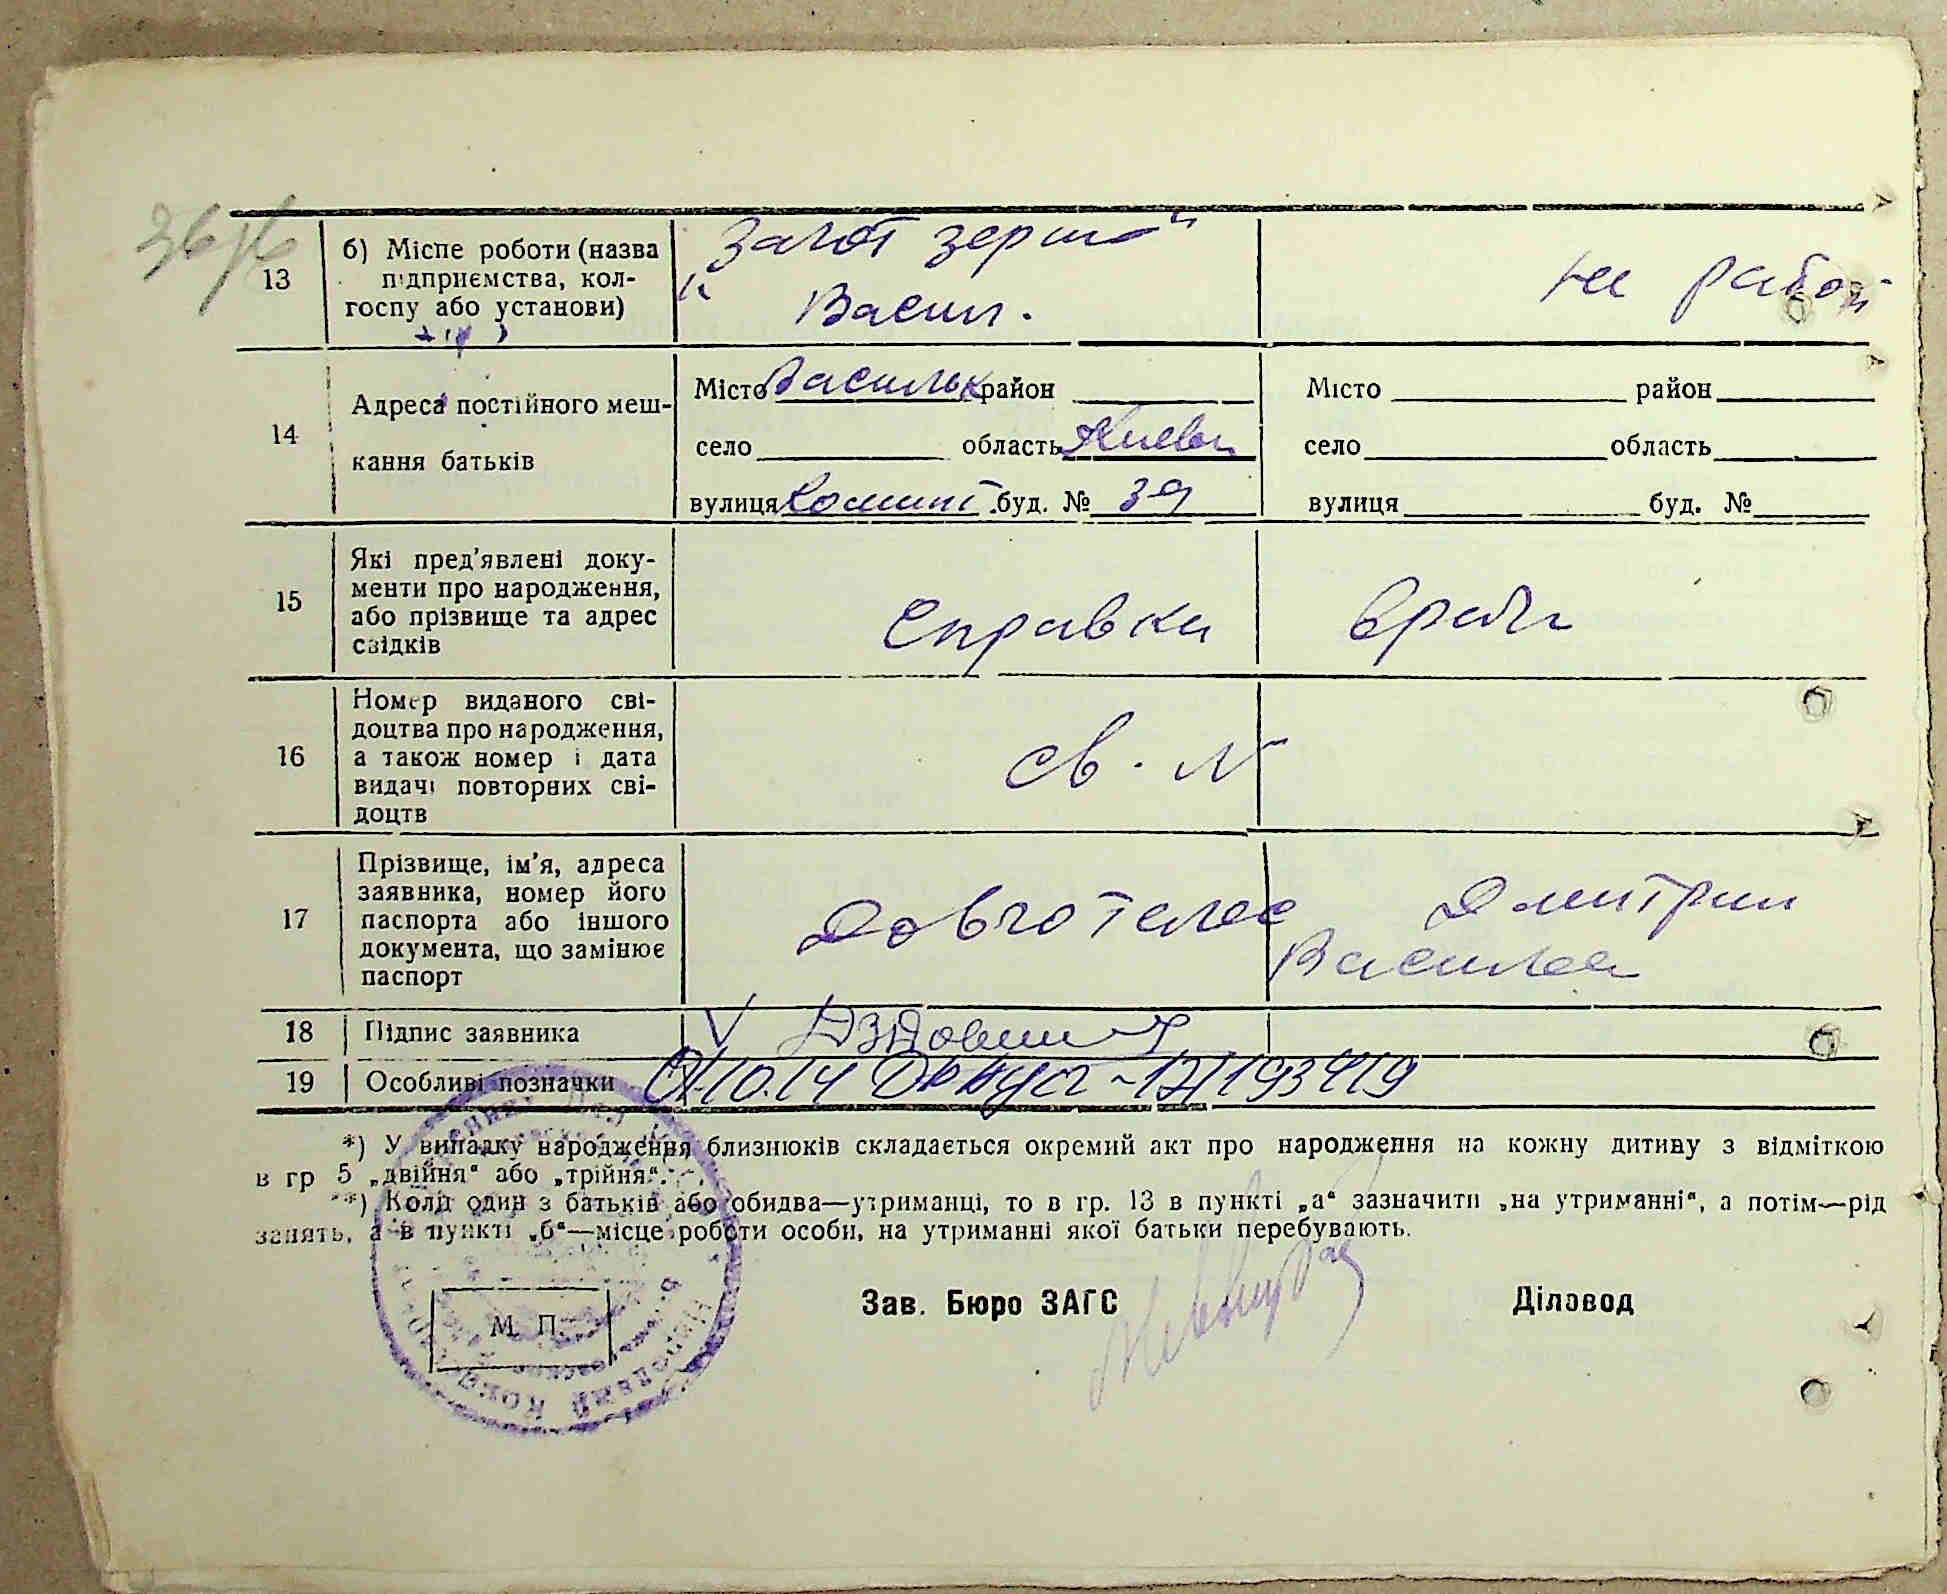 13
б) Місце роботи (назва
підприємства, кол-
госпу або установи)
„Загот зерно“
Васил.
не работ
14
Адреса постійного меш-
кання батьків
Місто Васильк район
село область Киевск
вулиця Комінт. буд. № 39
Місто район
село область
вулиця буд. №
15
Які пред'явлені доку-
менти про народження,
або прізвище та адрес
свідків
Справка врача
16
Номер виданого сві-
доцтва про народження,
а також номер і дата
видачі повторних сві-
доцтв
св. №
17
Прізвище, ім'я, адреса
заявника, номер його
паспорта або іншого
документа, що замінює
паспорт
Довготелес Дмитрий
Василев
18 Підпис заявника
19 Особливі позначки
*) У випадку народження близнюків складається окремий акт про народження на кожну дитину з відміткою
в гр 5 „двійня“ або „трійня“.
**) Коли один з батьків або обидва—утриманці, то в гр. 13 в пункті „а“ зазначити „на утриманні“, а потім—рід
занять, а в пункті „б“—місце роботи особи, на утриманні якої батьки перебувають.
Зав. Бюро ЗАГС Діловод
М. П.